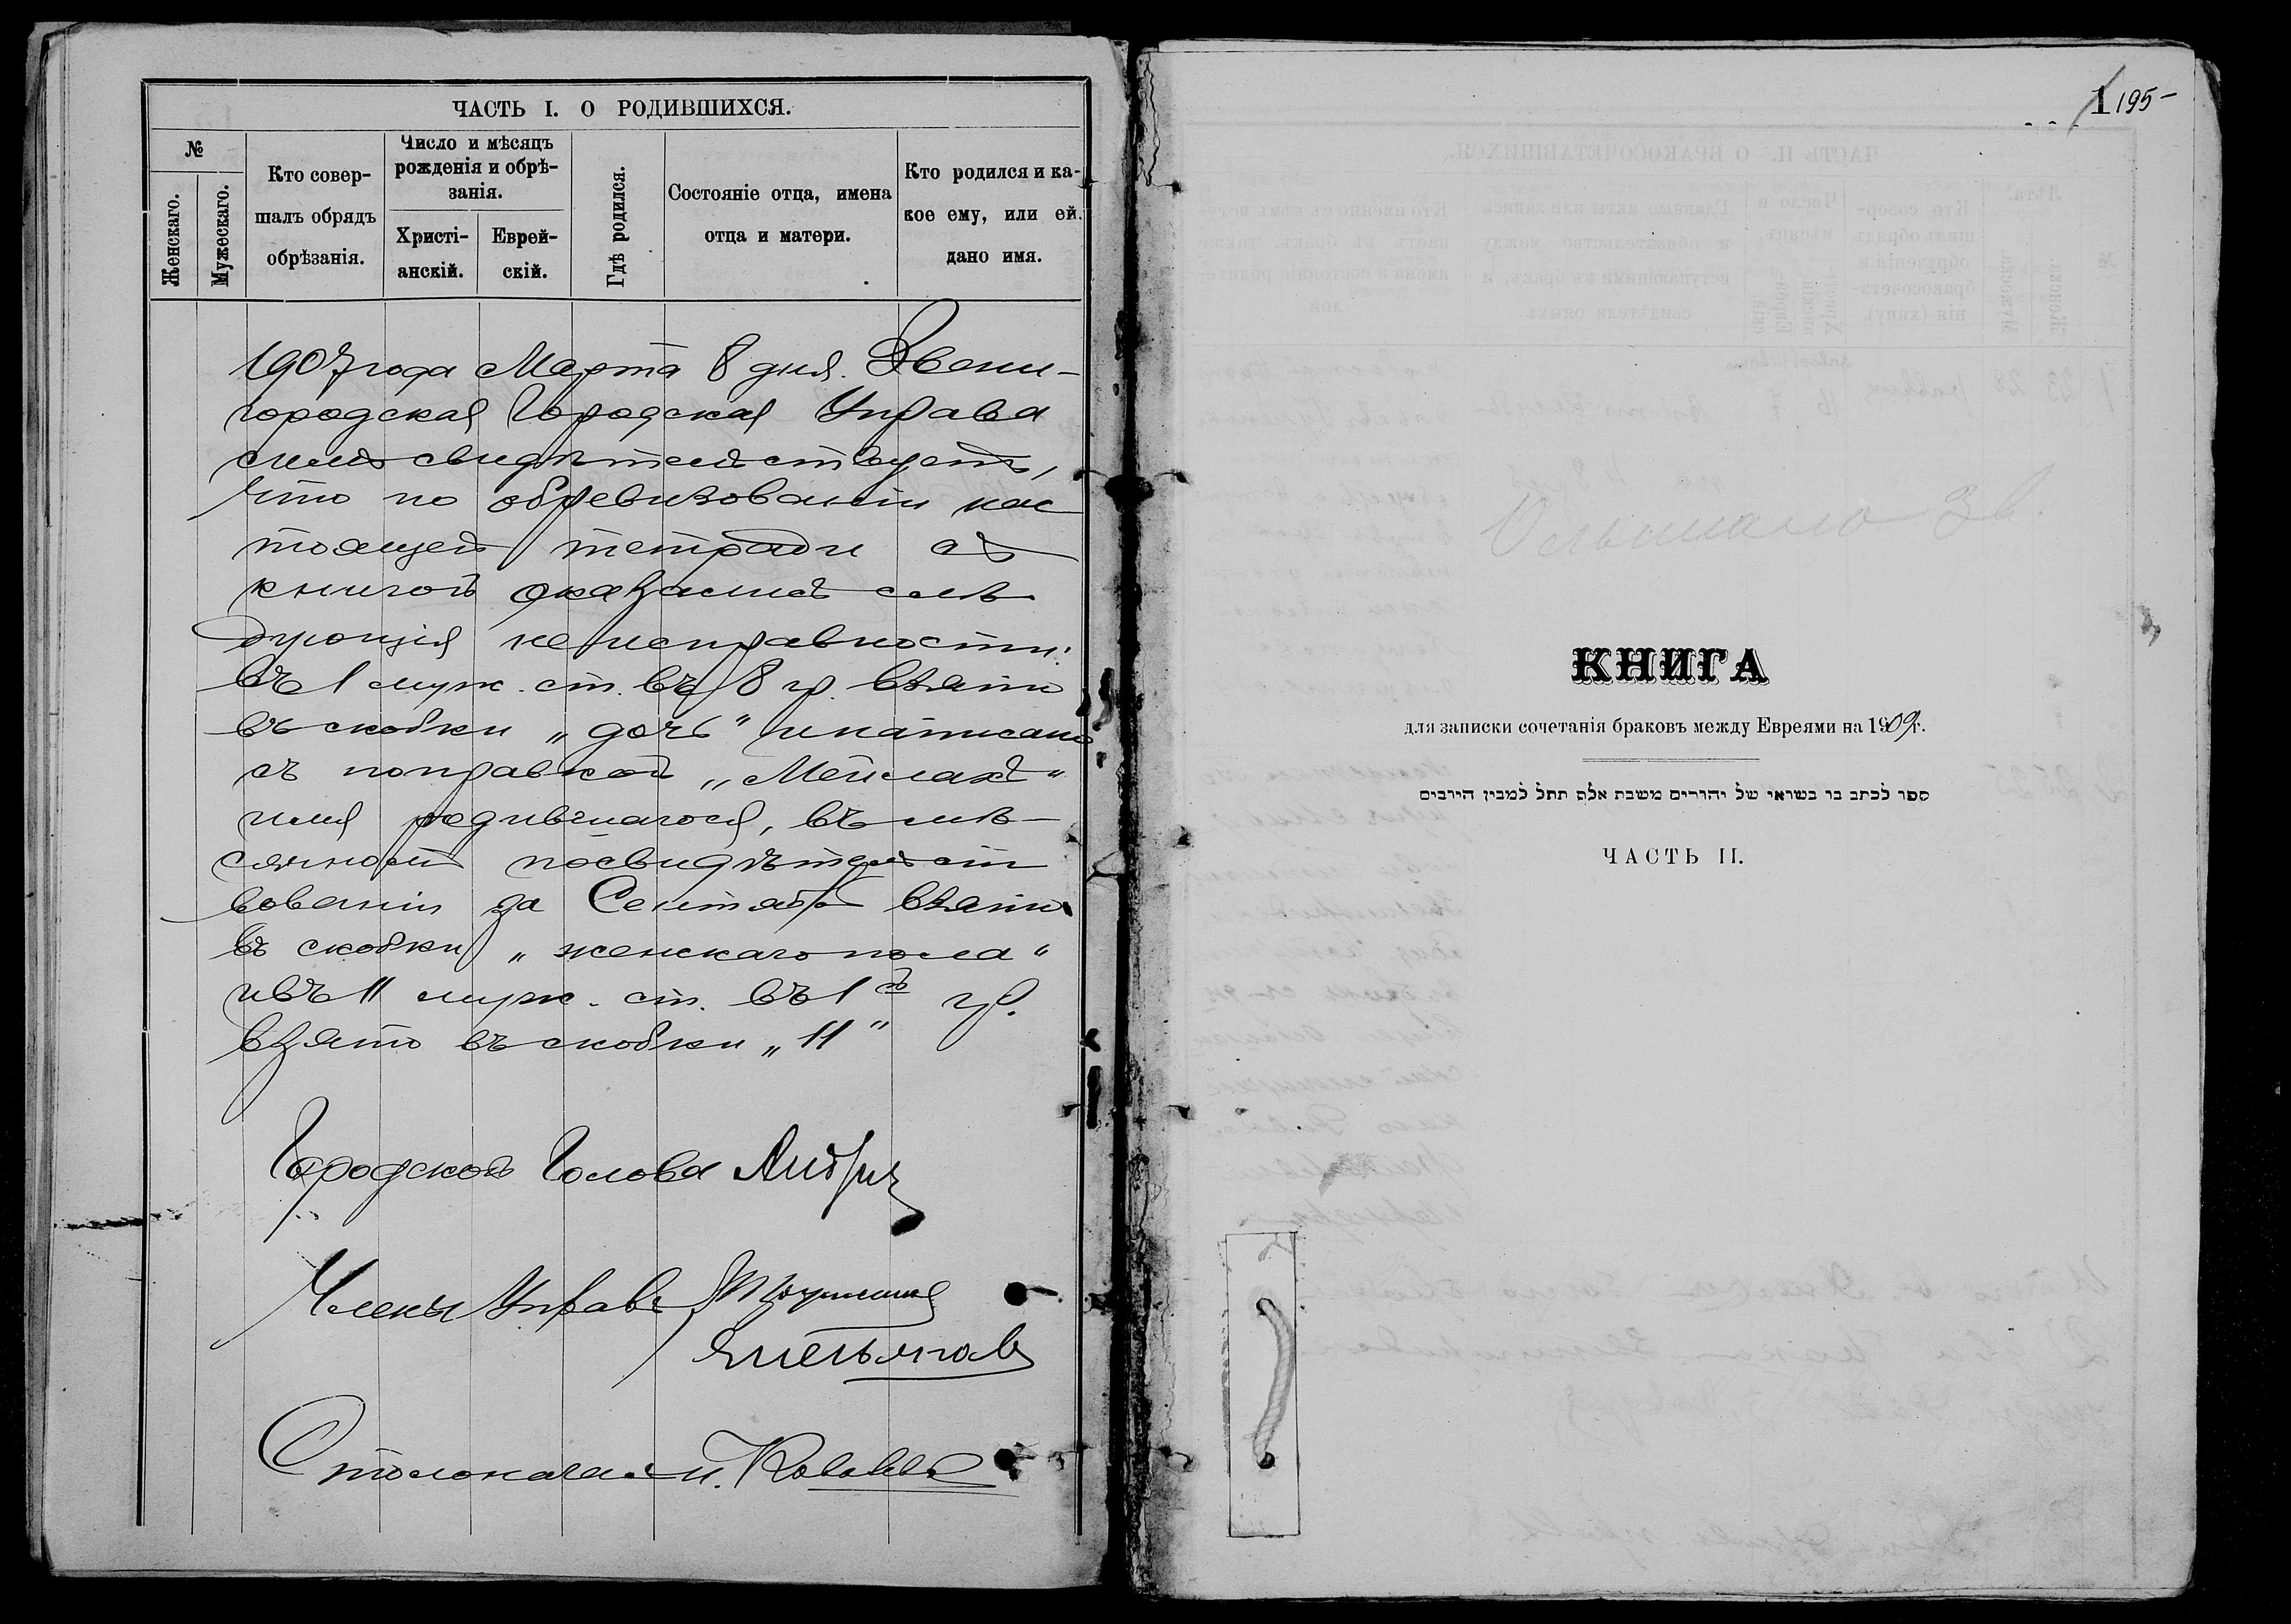 ЧАСТЬ I. О РОДИВШИХСЯ.
№
Женскаго.
Мужескаго.
Кто совер-
шалъ обрядъ
обрѣзанія.
Число и мѣсяцъ
рожденія и обрѣ-
занія.
Христі-
анскій.
Еврей-
скій.
Гдѣ родился.
Состояніе отца, имена
отца и матери.
Кто родился и ка-
кое ему, или ей.
дано имя.
1907 года Марта 8 дня. Звени-
городская Городская Управа
симъ свидѣтельствуетъ,
что по обревизованіи нас
тоящей тетради съ
книгой оказались слѣ
дующія неисправности:
въ 1 муж. ст. въ 8 гр. взято
въ скобки „дочь" и написано
съ поправкой „Мейлахъ"
имя родившагося, въ мѣ-
сячномъ посвидѣтельст
вованіи за Сентябрь взято
въ скобки „женскаго пола"
и въ 11 муж. ст. въ 1й гр.
взято въ скобки „11"
Городской Голова
Члены Управы
Емельянов
Столоначальн.
1 195-
Ольшана Зв.
КНИГА
для записки сочетанія браковъ между Евреями на 1909г.
ספר לכתב בו בשואי של יהורים משבת אלף תתל למבין הירבים
ЧАСТЬ II.